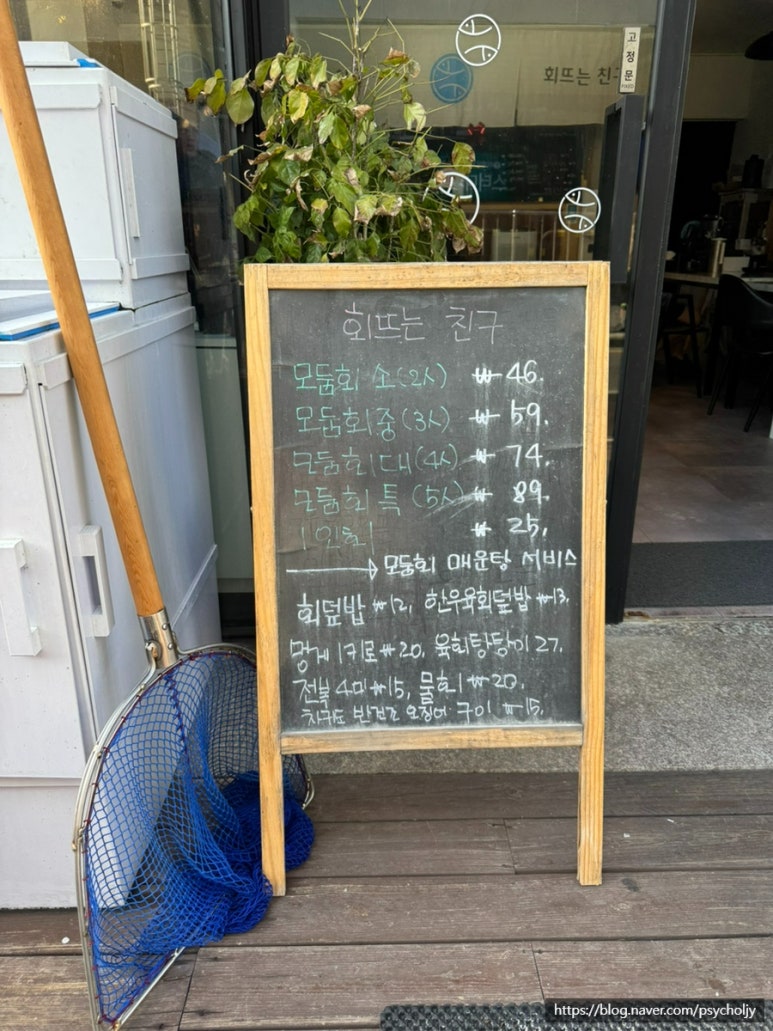 고정문
FIXED
회뜨는 친구
회뜨는 친구
모둠회 소(2人) ₩ 46.
모둠회중(3人) ₩ 59.
모둠회대(4人) ₩ 74.
모둠회 특 (5人) ₩ 89.
1인회 ₩ 25.
→ 모둠회 매운탕 서비스
회덮밥 ₩12, 한우육회덮밥 ₩13.
멍게 1키로 ₩20, 육회탕탕이 27.
전복 4미 ₩15, 물회 ₩20.
반건조 오징어 구이 ₩15.
https://blog.naver.com/psycholjy